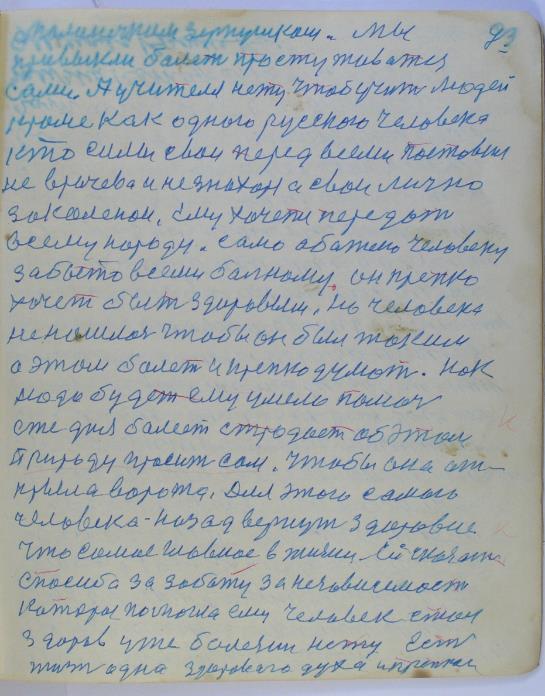 маленичким зернушкам. Мы 93
привыкли болет простуживатся
сами. А учителя нету чтоб учит людей
кроме как одного русского человека
кто сили свои перед всеми поставил
не врачева и не знахоря а свои лично
закаленои. Ему хочети передат
всему народу. само обажено человеку
забыто всеми балному, он крепко
хочет быт здоровым, но человека
ненашлос чтобы он был таким
о этом болет и крепко думат. Как
надо будет ему умело помоч
сие дня болеет страдает об этом
Природу просит сам. чтобы она от-
крыла ворота. Для этого самого
человека назад вернут здоровие
что самое главное в жизни Ей сказат
спасиба за заботу за независемост
которая помогла ему человек стал
здоров уже болезни нету Ест
жит одна здороваго духа